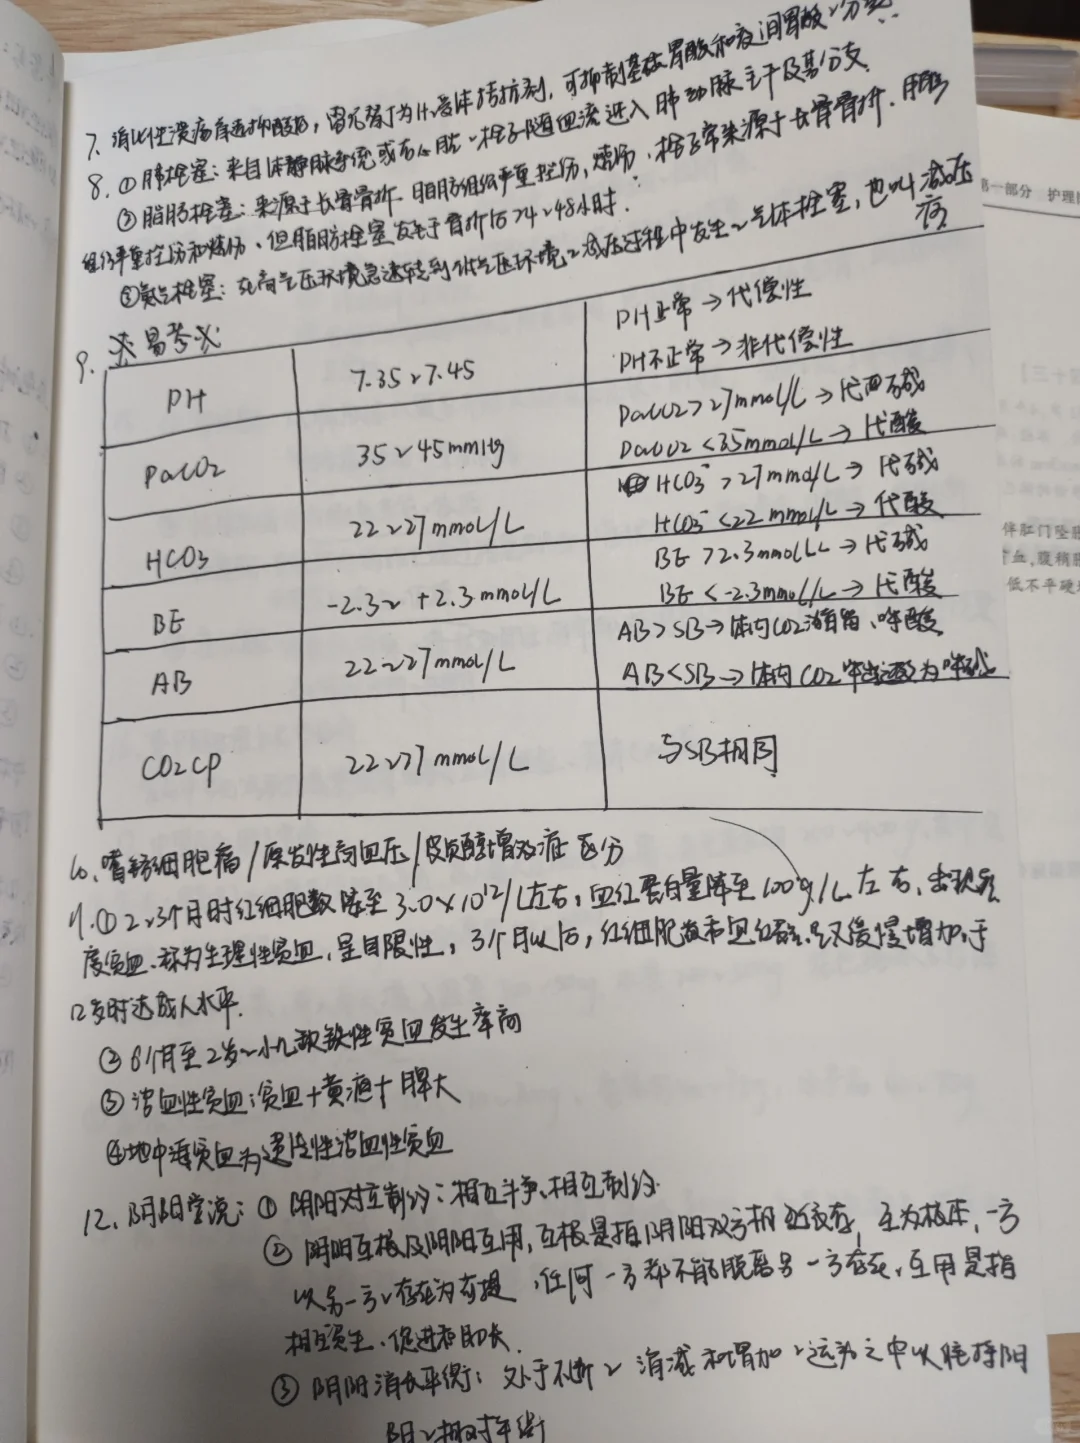 7、消化性溃疡首选抑酸药,雷尼替丁为H2受体拮抗剂,可抑制基础胃酸和夜间胃酸~分泌.
8、①肺栓塞:来自体静脉系统或右心脏~栓子随血流进入肺动脉主干及其分支.
②脂肪栓塞:来源于长骨骨折、脂肪组织严重挫伤,烧伤.栓子常来源于长骨骨折.脂肪
组织严重挫伤和烧伤、但脂肪栓塞发生于骨折后24~48小时.
③氮气栓塞:在高气压环境急速转到低气压环境~减压过程中发生~气体栓塞,也叫减压
病
9. ※易考※
PH 7.35~7.45 PH正常→代偿性
PH不正常→非代偿性
PaCO2 35~45mmHg PaCO2>27mmol/L→代碱
PaCO2<35mmol/L→代酸
HCO3 22~27mmol/L HCO3⁻>27mmol/L→代碱
HCO3⁻<22mmol/L→代酸
BE -2.3~+2.3mmol/L BE>2.3mmol/L→代碱
BE<-2.3mmol/L→代酸
AB 22~27mmol/L AB>SB→体内CO2潴留、呼酸
AB<SB→体内CO2呼出过多为呼碱
CO2CP 22~27mmol/L 与SB相同
10、嗜铬细胞瘤/原发性高血压/皮质醇增多症 区分
11.①2~3个月时红细胞数降至3.0×10¹²/L左右,血红蛋白量降至100g/L左右,出现轻
度贫血、称为生理性贫血,呈自限性,3个月以后,红细胞数和血红蛋白又缓慢增加,于
12岁时达成人水平.
②6个月至2岁~小儿缺铁性贫血发生率高
③溶血性贫血:贫血+黄疸+脾大
④地中海贫血为遗传性溶血性贫血
12、阴阳学说:①阴阳对立制约:相互斗争、相互制约.
②阴阳互根及阴阳互用,互根是指阴阳双方相互依存,互为根本,一方
以另一方~存在为前提,任何一方都不能脱离另一方存在,互用是指
相互资生、促进和助长.
③阴阳消长平衡:处于不断~消减和增加~运动之中以维持阴
阳~相对平衡
第一部分 护理
十三】
伴肛门坠胀
血,腹稍胀
低不平硬